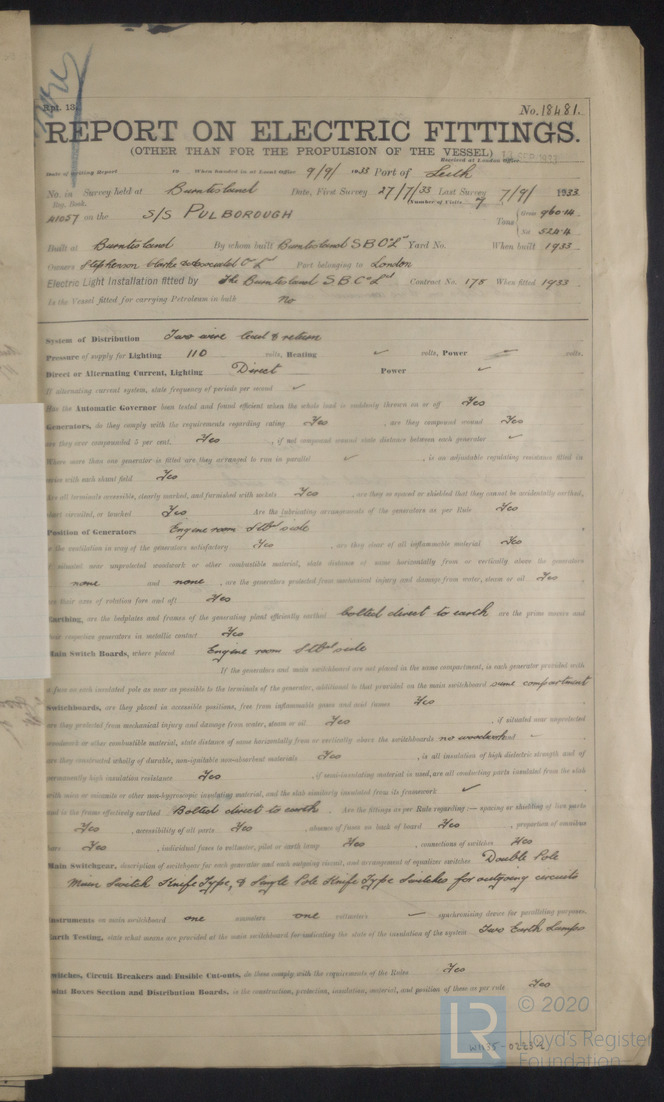 Rpt. 13.
No. 18481.
REPORT ON ELECTRIC FITTINGS.
(OTHER THAN FOR THE PROPULSION OF THE VESSEL)
Received at London Office
Date of writing Report 19 When handed in at Local Office 9/9/ 1933 Port of Leith
No. in Survey held at Burntisland Date, First Survey 27/7/33 Last Survey 7/9/ 1933
Reg. Book. (Number of Visits
41057 on the S/S PULBOROUGH Tons Gross 960.14 Net 524.4
Built at Burntisland By whom built Burntisland S B Co Ld Yard No. When built 1933
Owners Stephenson Clarke & Associated Co Ld Port belonging to London
Electric Light Installation fitted by The Burntisland S. B. Co Ld Contract No. 175 When fitted 1933
Is the Vessel fitted for carrying Petroleum in bulk No
System of Distribution Two wire lead & return
Pressure of supply for Lighting 110 volts, Heating ✓ volts, Power volts.
Direct or Alternating Current, Lighting Direct Power ✓
If alternating current system, state frequency of periods per second ✓
Has the Automatic Governor been tested and found efficient when the whole load is suddenly thrown on or off Yes
Generators, do they comply with the requirements regarding rating Yes , are they compound wound Yes
are they over compounded 5 per cent. Yes , if not compound wound state distance between each generator ✓
Where more than one generator is fitted are they arranged to run in parallel ✓ , is an adjustable regulating resistance fitted in
series with each shunt field Yes
Are all terminals accessible, clearly marked, and furnished with sockets Yes , are they so spaced or shielded that they cannot be accidentally earthed,
short circuited, or touched Yes Are the lubricating arrangements of the generators as per Rule Yes
Position of Generators Engine room Stbd side
is the ventilation in way of the generators satisfactory Yes , are they clear of all inflammable material Yes
if situated near unprotected woodwork or other combustible material, state distance of same horizontally from or vertically above the generators
none and none , are the generators protected from mechanical injury and damage from water, steam or oil Yes
are their axes of rotation fore and aft Yes
Earthing, are the bedplates and frames of the generating plant efficiently earthed bolted direct to earth are the prime movers and
their respective generators in metallic contact Yes
Main Switch Boards, where placed Engine room Stbd side
If the generators and main switchboard are not placed in the same compartment, is each generator provided with
a fuse on each insulated pole as near as possible to the terminals of the generator, additional to that provided on the main switchboard same compartment
Switchboards, are they placed in accessible positions, free from inflammable gases and acid fumes Yes
are they protected from mechanical injury and damage from water, steam or oil Yes , if situated near unprotected
woodwork or other combustible material, state distance of same horizontally from or vertically above the switchboards no woodwork
are they constructed wholly of durable, non-ignitable non-absorbent materials Yes , is all insulation of high dielectric strength and of
permanently high insulation resistance Yes , if semi-insulating material is used, are all conducting parts insulated from the slab
with mica or micanite or other non-hygroscopic insulating material, and the slab similarly insulated from its framework ✓
and is the frame effectively earthed Bolted direct to earth . Are the fittings as per Rule regarding:— spacing or shielding of live parts
Yes , accessibility of all parts Yes , absence of fuses on back of board Yes , proportion of omnibus
bars Yes , individual fuses to voltmeter, pilot or earth lamp Yes , connections of switches Yes
Main Switchgear, description of switchgear for each generator and each outgoing circuit, and arrangement of equalizer switches Double Pole
Main Switch Knife Type, & Single Pole Knife Type Switches for outgoing circuits
Instruments on main switchboard one ammeters one voltmeters — synchronising device for paralleling purposes.
Earth Testing, state what means are provided at the main switchboard for indicating the state of the insulation of the system Two Earth Lamps
Switches, Circuit Breakers and Fusible Cut-outs, do these comply with the requirements of the Rules Yes
Joint Boxes Section and Distribution Boards, is the construction, protection, insulation, material, and position of these as per rule Yes
© 2020
LR Lloyd's Register
Foundation
W1135-0225-2